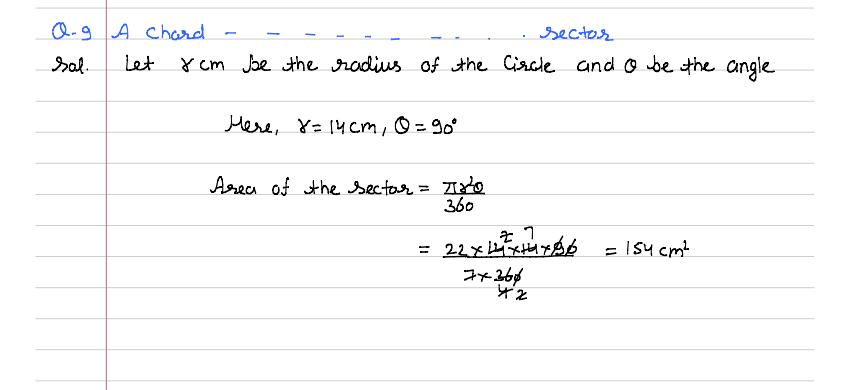 Q-9 A Chord - - - - - - -- . . . sector
Sol. Let r cm be the radius of the Circle and θ be the angle
Here, r = 14 cm, θ = 90°
Area of the sector = πr²θ
360
2 7
= 22 × 14 × 14 × 90 = 154 cm²
7 × 360
4 2